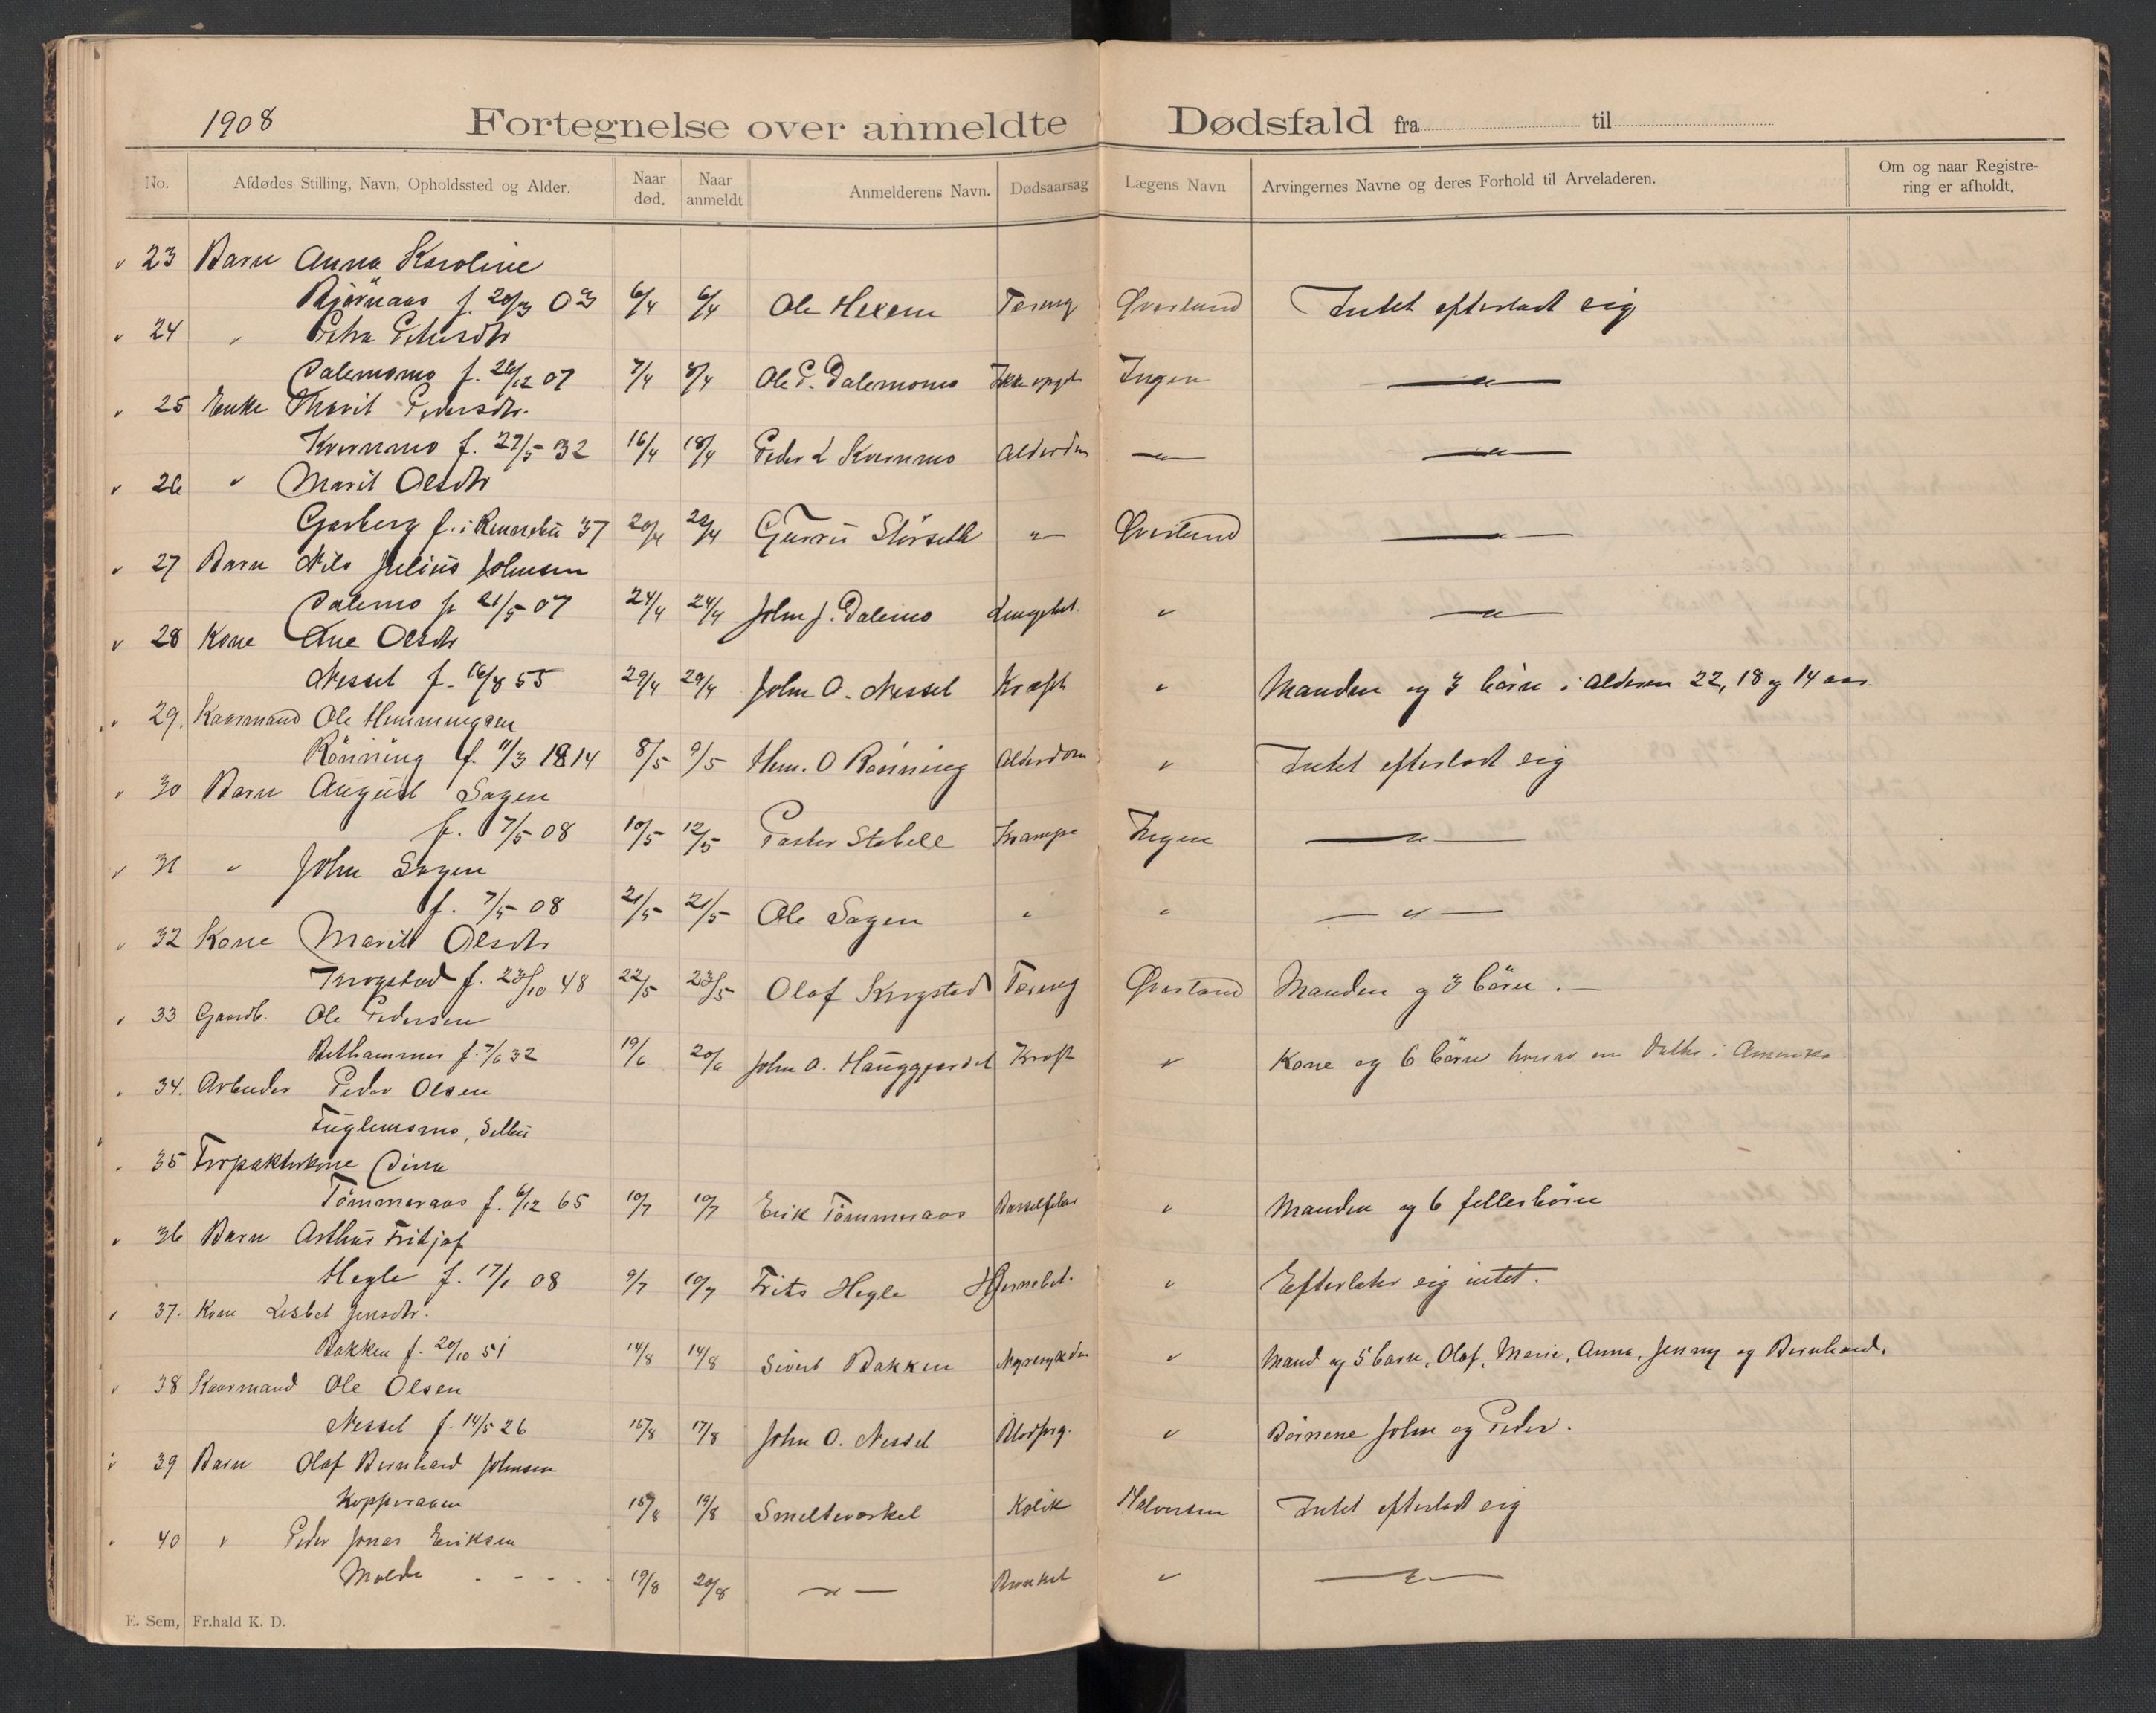 1908 Fortegnelse over anmeldte Dødsfald fra til
No. Afdødes Stilling, Navn, Opholdssted og Alder. Naar død. Naar anmeldt Anmelderens Navn. Dødsaarsag Lægens Navn Arvingernes Navne og deres Forhold til Arveladeren. Om og naar Registrering er afholdt.
23 Barn Anna Karoline
Bjørnaas f. 20/3 03 6/4 6/4 Ole Hexem Tæring Qverlund Intet efterladt sig
24 " Petra Petersdtr
Dalemomo f. 12 07 7/4 8/4 Ole P. Dalemomo Ikke opgit Ingen — " —
25 Enke Marit Pedersdtr.
Kvernmo f. 27/5 32 16/4 18/4 Peder L Kvernmo Alderdom — " — — " —
26 " Marit Olsdtr
Garberg f. i Rennebu 37 20/4 22/4 Guru Störseth " Qverlund — " —
27 Barn Nils Julius Johnsen
Dalemo f. 21/5 07 24/4 24/4 John J. Dalemo Lungebet. " — " —
28 Kone Ane Olsdtr
Nessel f. 16/8 55 29/4 29/4 John O. Nessel Kræft " Manden og 3 börn i alderen 22, 18 og 14 aar
29. Kaarmand Ole Hemmingsen
Rönning f. 11/3 1814 8/5 9/5 Hem. O Rönning Alderdom " Intet efterladt sig
30 Barn August Sagen
f. 7/5 08 10/5 12/5 Pastor Stabell Krampe Ingen — " —
31 " John Sagen
f. 7/5 08 21/5 21/5 Ole Sagen " " — " —
32 Kone Marit Olsdtr
Krogstad f. 23/10 48 22/5 23/5 Olaf Krogstad Tæring Qverlund Manden og 3 börn. —
33 Gaardb. Ole Pedersen
Bethammer f. 7/6 32 19/6 20/6 John O. Hauggjerdet Kræft " Kone og 6 börn hvorav en Datter i Amerika
34. Arbeider Peder Olsen
Fuglemsmo, Selbu
35 Forpakterkone Dina
Tömmeraas f. 6/12 65 10/7 10/7 Erik Tömmeraas Barselfeber " Manden og 6 fellesbörn
36 Barn Arthur Fritjof
Hegle f. 17/1 08 9/7 10/7 Frits Hegle Hjernebet. " Efterlater sig intet.
37. Kone Lisbet Jensdtr.
Bakken f. 20/10 51 14/8 14/8 Sivert Bakken Nyresykdom " Mand og 5 barn, Olaf, Marie, Anna, Jenny og Bernhard.
38 Kaarmand Ole Olsen
Nessel f. 14/5 26 15/8 17/8 John O. Nessel Blodforg. " Börnene John og Peder.
39 Barn Olaf Bernhard Johnsen
Kopperaaen 15/8 19/8 Smelteverket Kolik Halvorsen Intet efterladt sig
40 " Peder Jonas Eriksen
Molde - - - - 19/8 20/8 — " — " — " —
E. Sem, Fr.hald K. D.